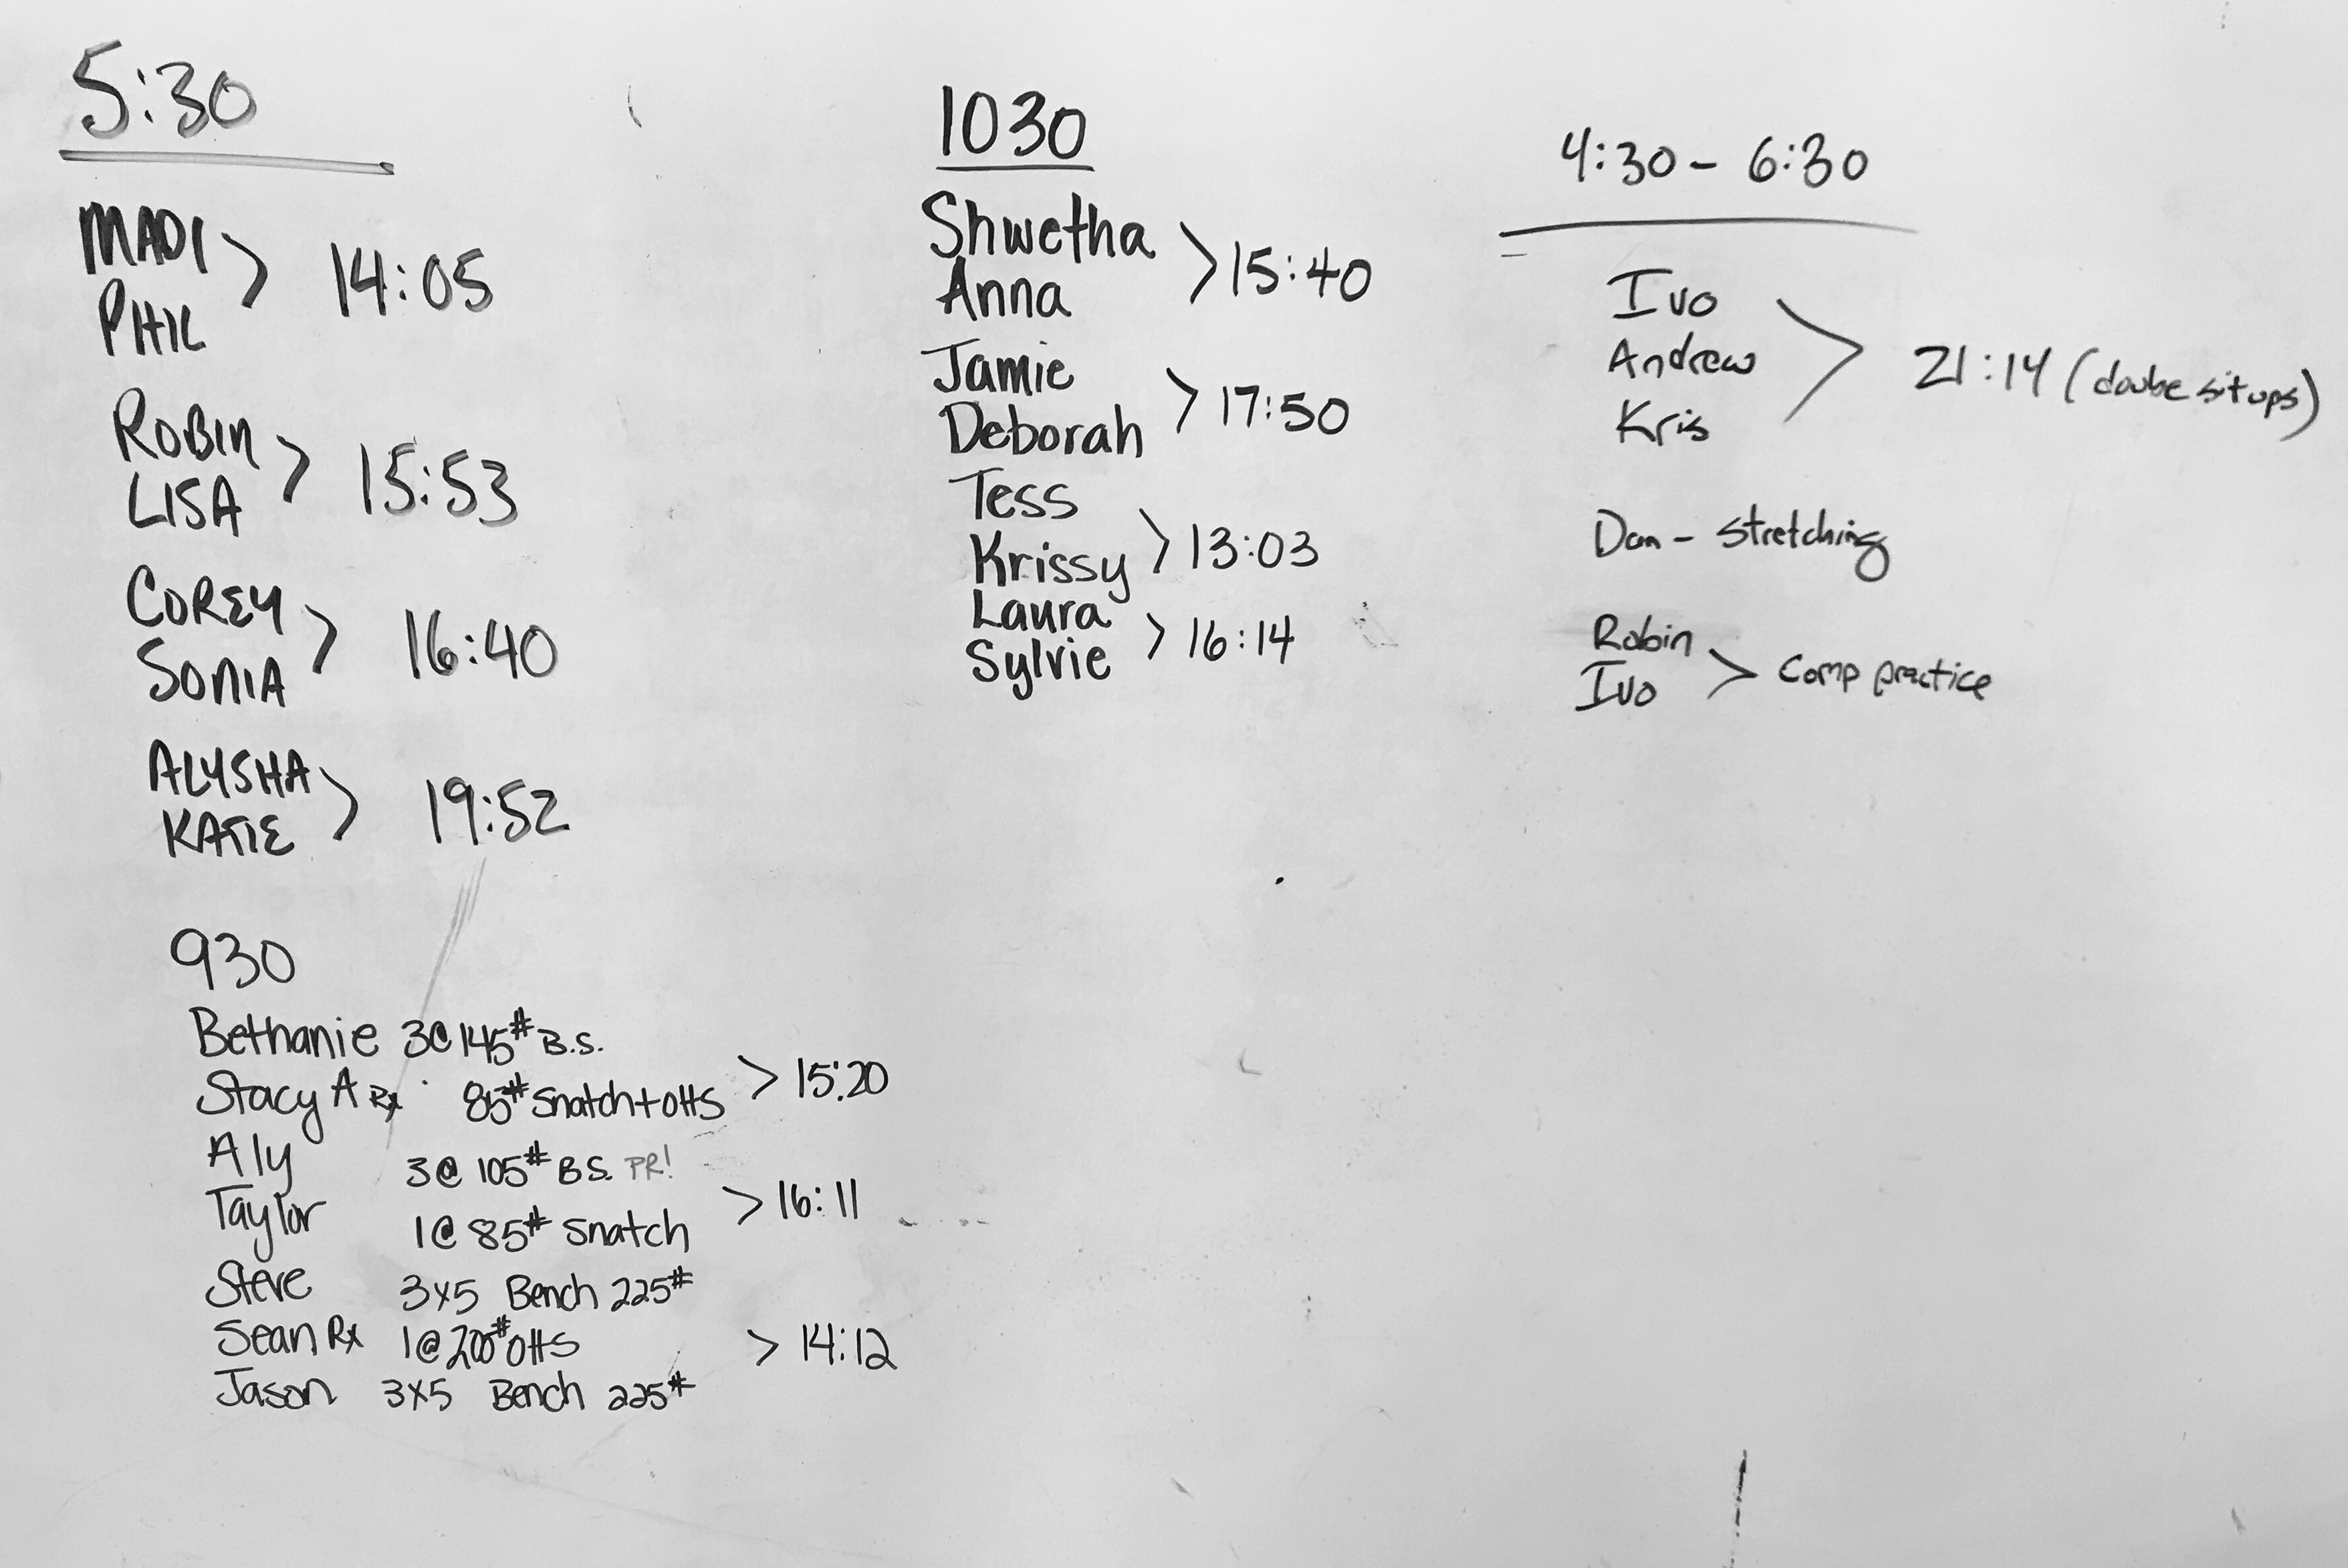 5:30
MADI
PHIL > 14:05
ROBIN
LISA > 15:53
COREY
SONIA > 16:40
ALYSHA
KATIE > 19:52
930
Bethanie 3@145# B.S.
Stacy A Rx 85# Snatch+OHS > 15:20
Aly 3@ 105# B.S. PR!
Taylor 1@ 85# Snatch > 16:11
Steve 3x5 Bench 225#
Sean Rx 1@200# OHS > 14:12
Jason 3x5 Bench 225#
1030
Shwetha
Anna > 15:40
Jamie
Deborah > 17:50
Tess
Krissy > 13:03
Laura
Sylvie > 16:14
4:30 - 6:30
Ivo
Andrew > 21:14 (doube sit ups)
Kris
Dan - Stretching
Robin
Ivo > Comp practice